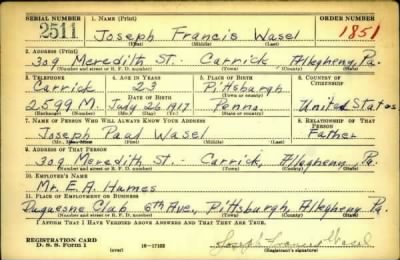 SERIAL NUMBER 1. NAME (Print) ORDER NUMBER
2511 Joseph Francis Wasel 1851
(First) (Middle) (Last)
2. ADDRESS (Print)
309 Meredith St. - Carrick, Allegheny, Pa.
(Number and street or R. F. D. number) (Town) (County) (State)
3. TELEPHONE 4. AGE IN YEARS 5. PLACE OF BIRTH 6. COUNTRY OF CITIZENSHIP
Carrick 23 Pittsburgh
DATE OF BIRTH (Town or county)
2599 M. July 26 1917 Penna. United States
(Exchange) (Number) (Mo.) (Day) (Yr.) (State or country)
7. NAME OF PERSON WHO WILL ALWAYS KNOW YOUR ADDRESS 8. RELATIONSHIP OF THAT PERSON
Joseph Paul Wasel Father
(First) (Middle) (Last)
9. ADDRESS OF THAT PERSON
309 Meredith St. - Carrick, Allegheny, Pa.
(Number and street or R. F. D. number) (Town) (County) (State)
10. EMPLOYER'S NAME
Mr. E. A. Humes
11. PLACE OF EMPLOYMENT OR BUSINESS
Duquesne Club 6th Ave., Pittsburgh, Allegheny Pa.
(Number and street or R. F. D. number) (Town) (County) (State)
I AFFIRM THAT I HAVE VERIFIED ABOVE ANSWERS AND THAT THEY ARE TRUE.
REGISTRATION CARD
D. S. S. Form 1 (over) 16-17105 Joseph Francis Wasel
(Registrant's signature)